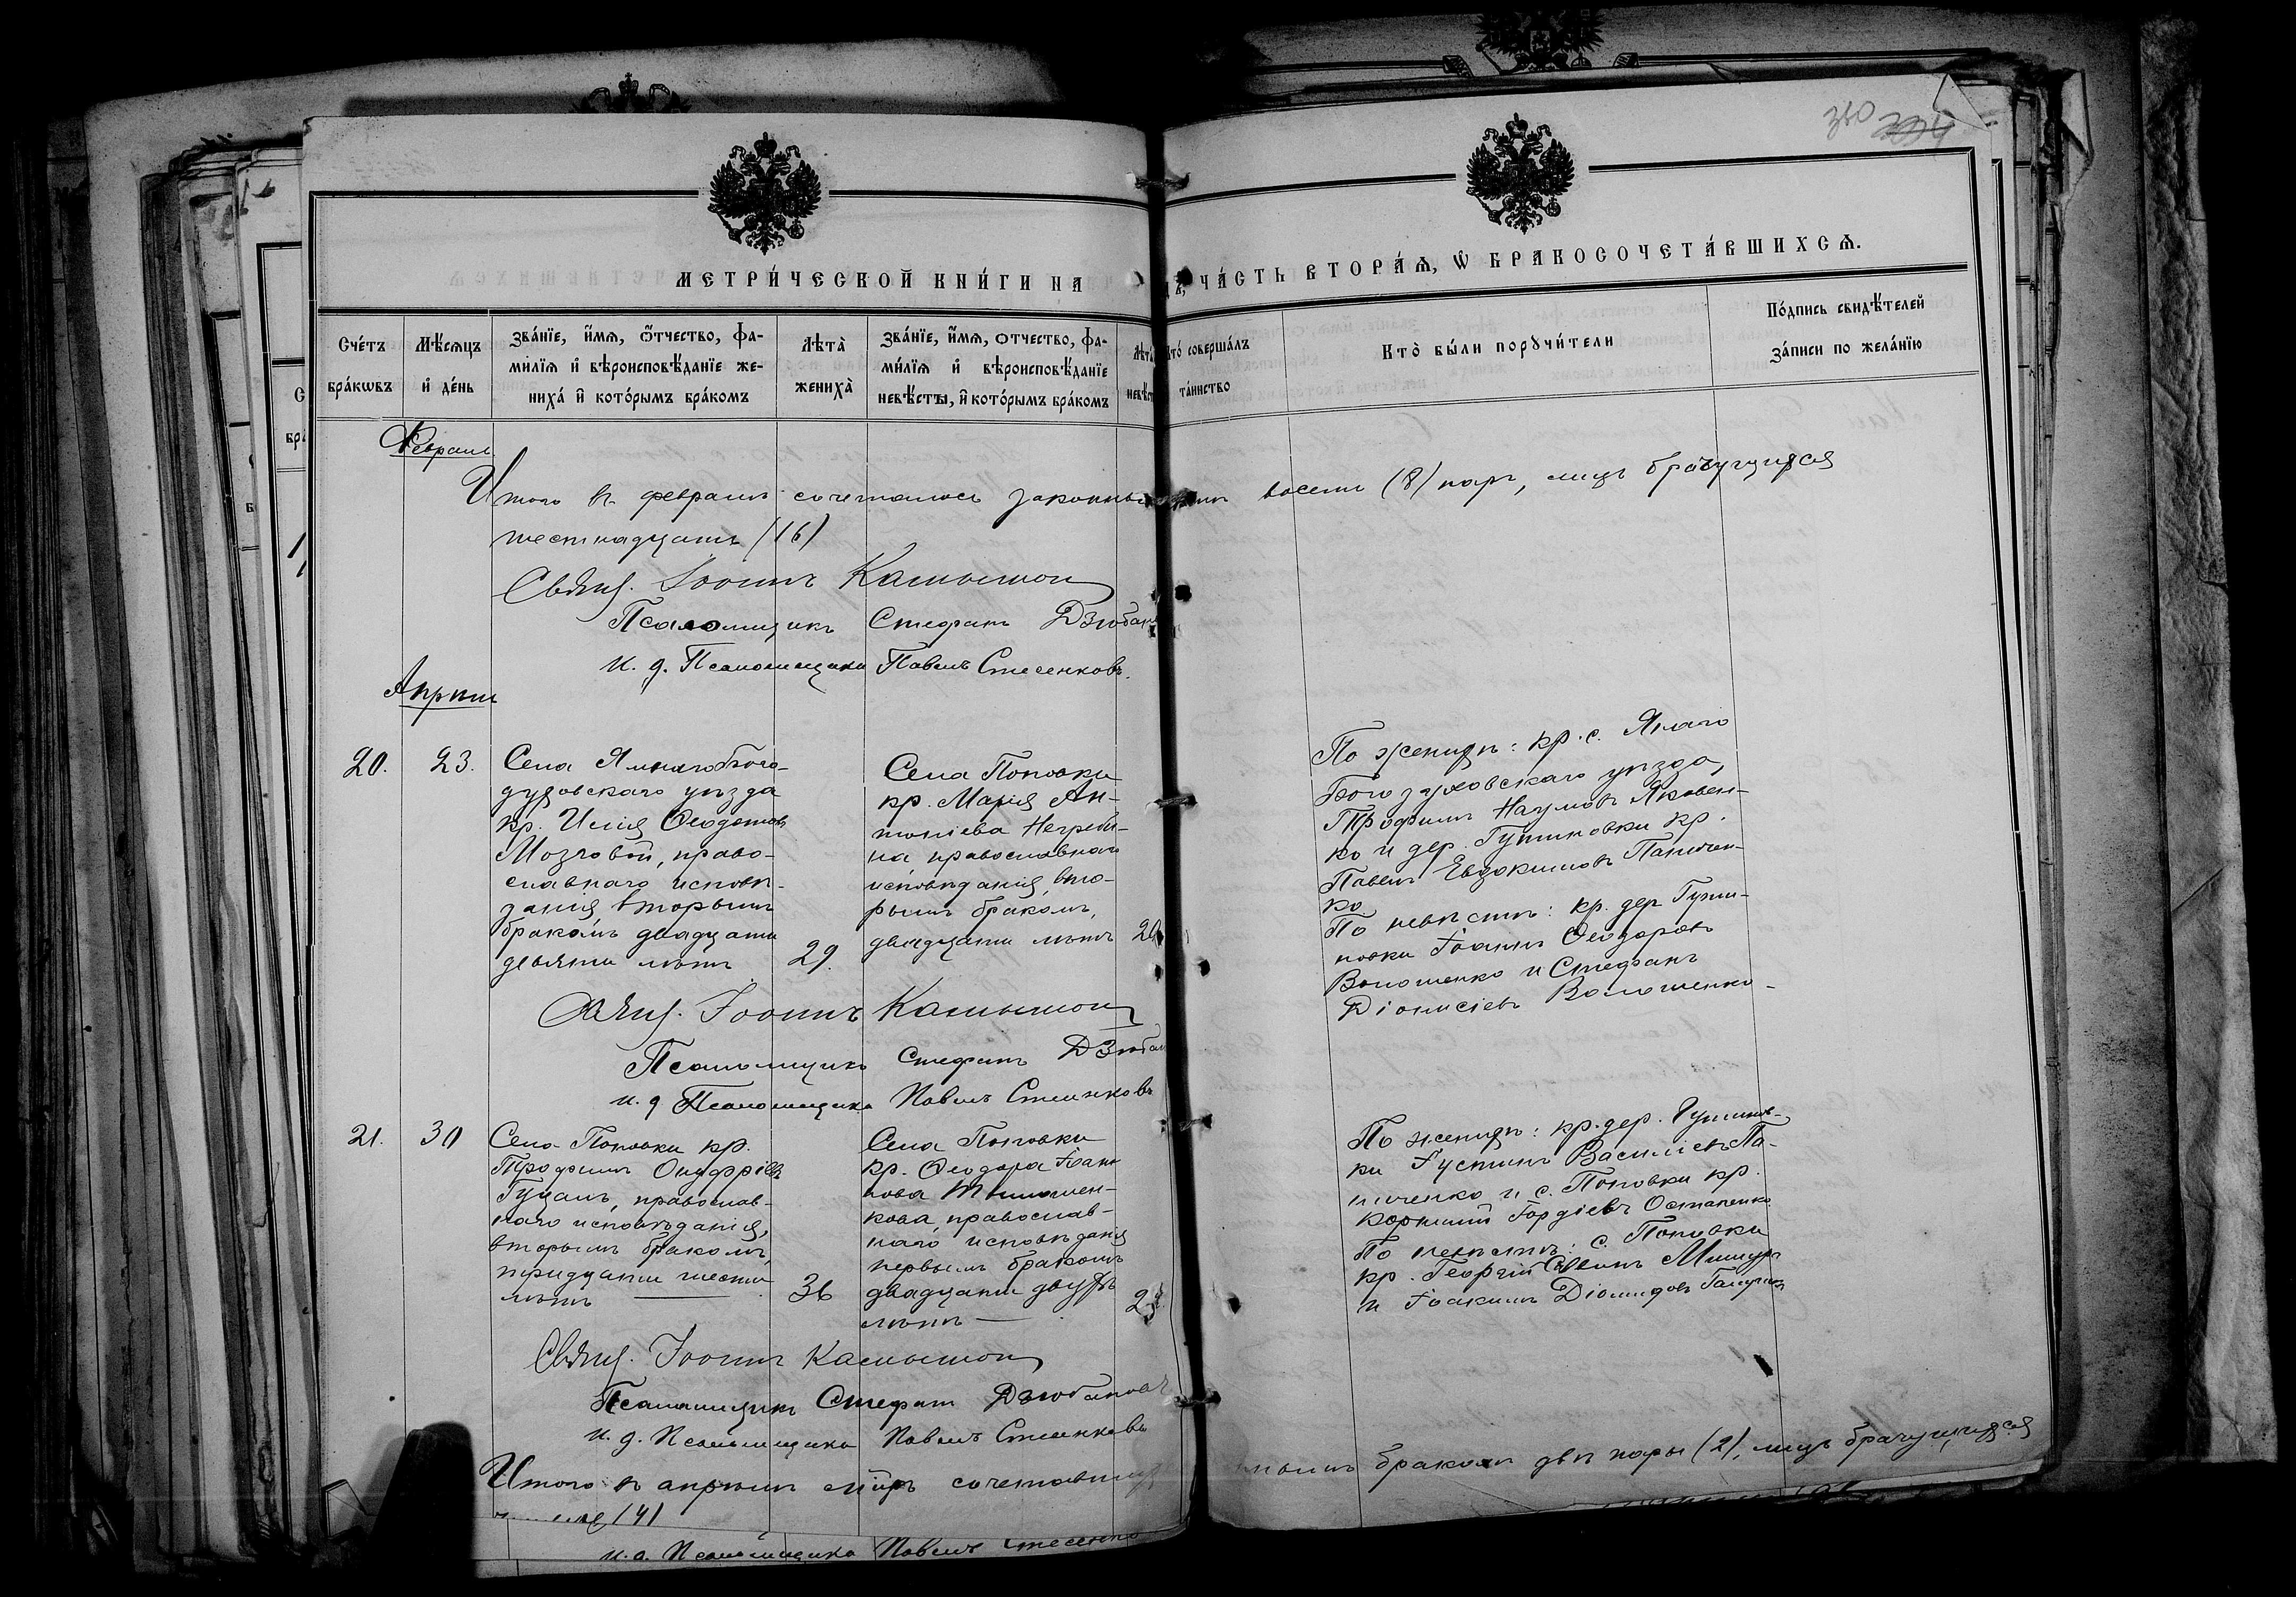 360 334
МЕТРИЧЕСКОЙ КНИГИ НА ДЪ, ЧАСТЬ ВТОРАЯ, Ѡ БРАКОСОЧЕТАВШИХСЯ.
Счетъ браковъ
Мѣсяцъ и день
Званіе, имя, отчество, фа-
милія и вѣроисповѣданіе же-
ниха и которымъ бракомъ
Лѣта жениха
Званіе, имя, отчество, фа-
милія и вѣроисповѣданіе
невѣсты, и которымъ бракомъ
Лѣта невѣст
Кто совершалъ таинство
Кто были поручители
Подпись свидѣтелей
записи по желанію
Февраль
Итого въ февралѣ сочеталось законны восемь (8) паръ, лицъ брачущихся
шестнадцать (16)
Свящ. Іоаннъ Камышан
Псаломщикъ Стефанъ Дзюбан
и. д. Псаломщика Павелъ Стесенковъ.
Апрѣль
20.
23.
Села Ямнаго Бого-
духовскаго уѣзда
кр. Илія Ѳеодотовъ
Мозговой, право-
славнаго исповѣ-
данія, вторымъ
бракомъ двадцати
девяти лѣтъ
29.
Села Поповки
кр. Марія Ан-
тоніева Негреби-
на православнаго
исповѣданія, вто-
рымъ бракомъ,
двадцати лѣтъ
20
По женихѣ: кр. с. Ямнаго
Богодуховскаго уѣзда,
Трофимъ Наумовъ Яковен-
ко и дер. Гутиновки кр.
Павелъ Евдокимовъ Паничен-
ко
По невѣстѣ: кр. дер. Гути-
новки Іоаннъ Ѳеодоровъ
Волошенко и Стефанъ
Діонисіевъ Волошенко
Свящ. Іоаннъ Камышан
Псаломщикъ Стефанъ Дзюбан
и. д. Псаломщика Павелъ Стесенковъ
21.
30
Села Поповки кр.
Трофимъ Онуфріевъ
Гуцалъ, православ-
наго исповѣданія,
вторымъ бракомъ,
тридцати шести
лѣтъ
36
Села Поповки
кр. Ѳеодора Іоан
нова
кова, православ-
наго исповѣданія
первымъ бракомъ
двадцати двухъ
лѣтъ
По женихѣ: кр. дер. Гутинов-
ки Іустинъ Василіевъ Па-
ниченко и с. Поповки кр.
Корнилій Гордіевъ Остапенко.
По невѣстѣ: с. Поповки
кр. Георгій
и Іоакимъ Діомидовъ
Свящ. Іоаннъ Камышан
Псаломщикъ Стефанъ Дзюбановъ
и. д. Псаломщика Павелъ Стесенковъ
Итого въ апрѣлѣ сочетавши бракомъ двѣ пары (2), лицъ брачущихся
(4)
и. д. Псаломщика Павелъ Стесенко